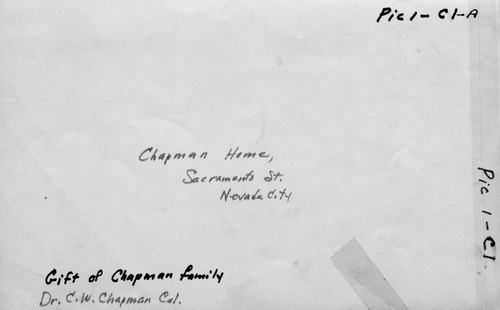 Pic 1 - C1-A
Chapman Home,
Sacramento St.
Nevada City
Pic 1 - C1
Gift of Chapman family
Dr. C.W. Chapman Col.